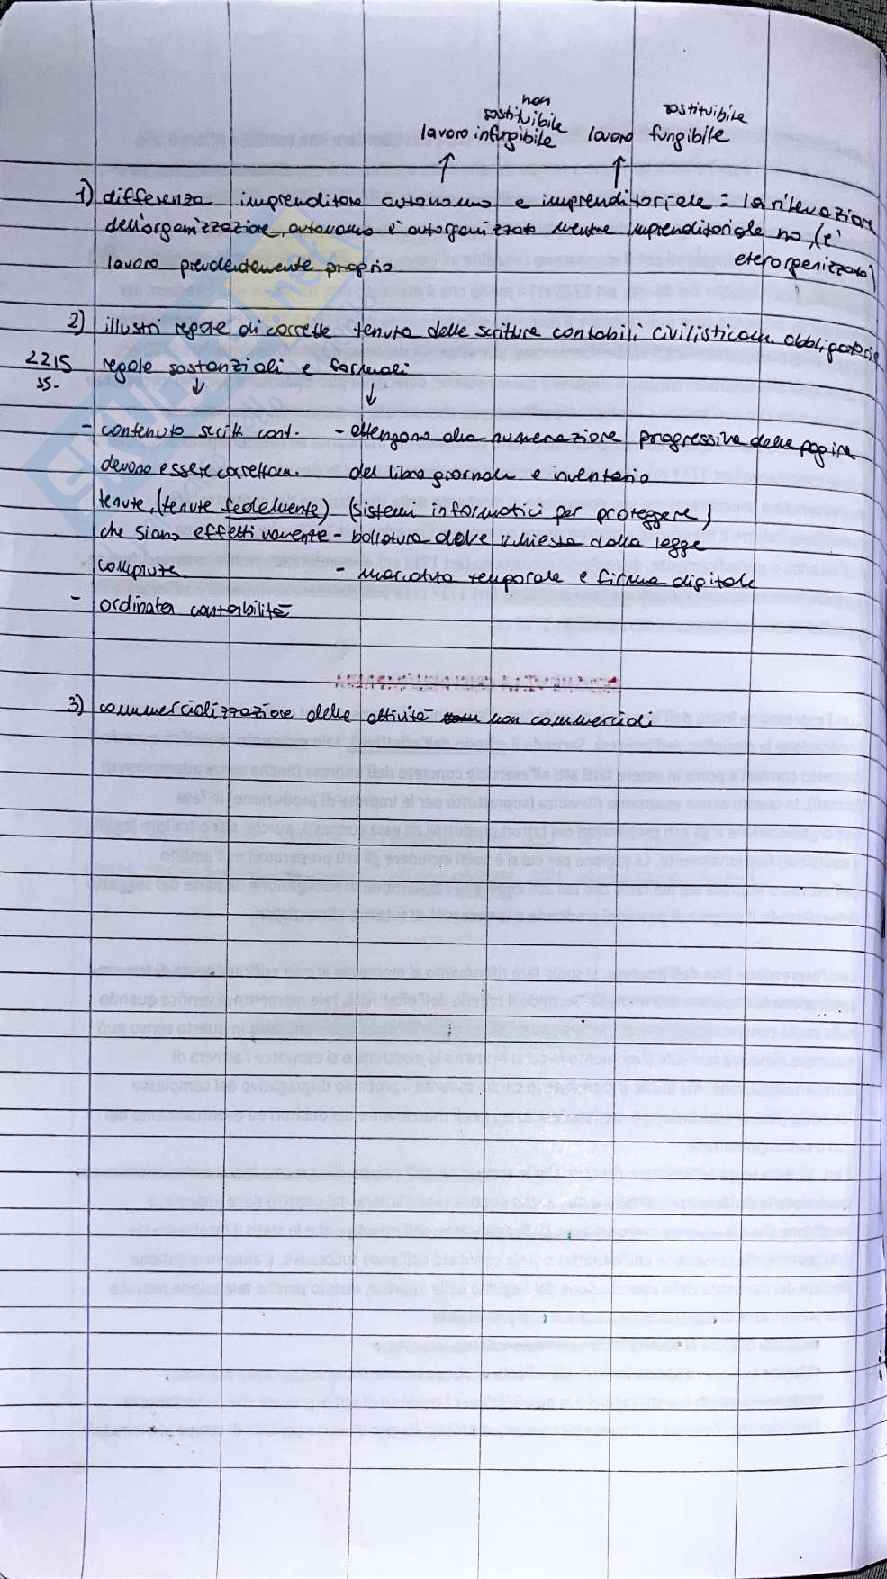 non
sostituibile sostituibile
lavoro infungibile lavoro fungibile
1) differenza imprenditore autonomo e imprenditoriale = la rilevazione
dell'organizzazione, autonomo è autorganizzato mentre imprenditoriale no, (è
lavoro prevalentemente proprio eterorganizzato)
2) illustri regole di corretta tenuta delle scritture contabili civilisticam. obbligatorie
2215 regole sostanziali e formali
ss.
- contenuto scritt. cont. - attengono alla numerazione progressiva delle pagine
devono essere correttam. del libro giornale e inventario
tenute, (tenute fedelmente) (sistemi informatici per proteggere)
che siano effettivamente - bollatura dove richiesta dalla legge
compiute - marcatura temporale e firma digitale
- ordinata contabilità
3) commercializzazione delle attività non commerciali